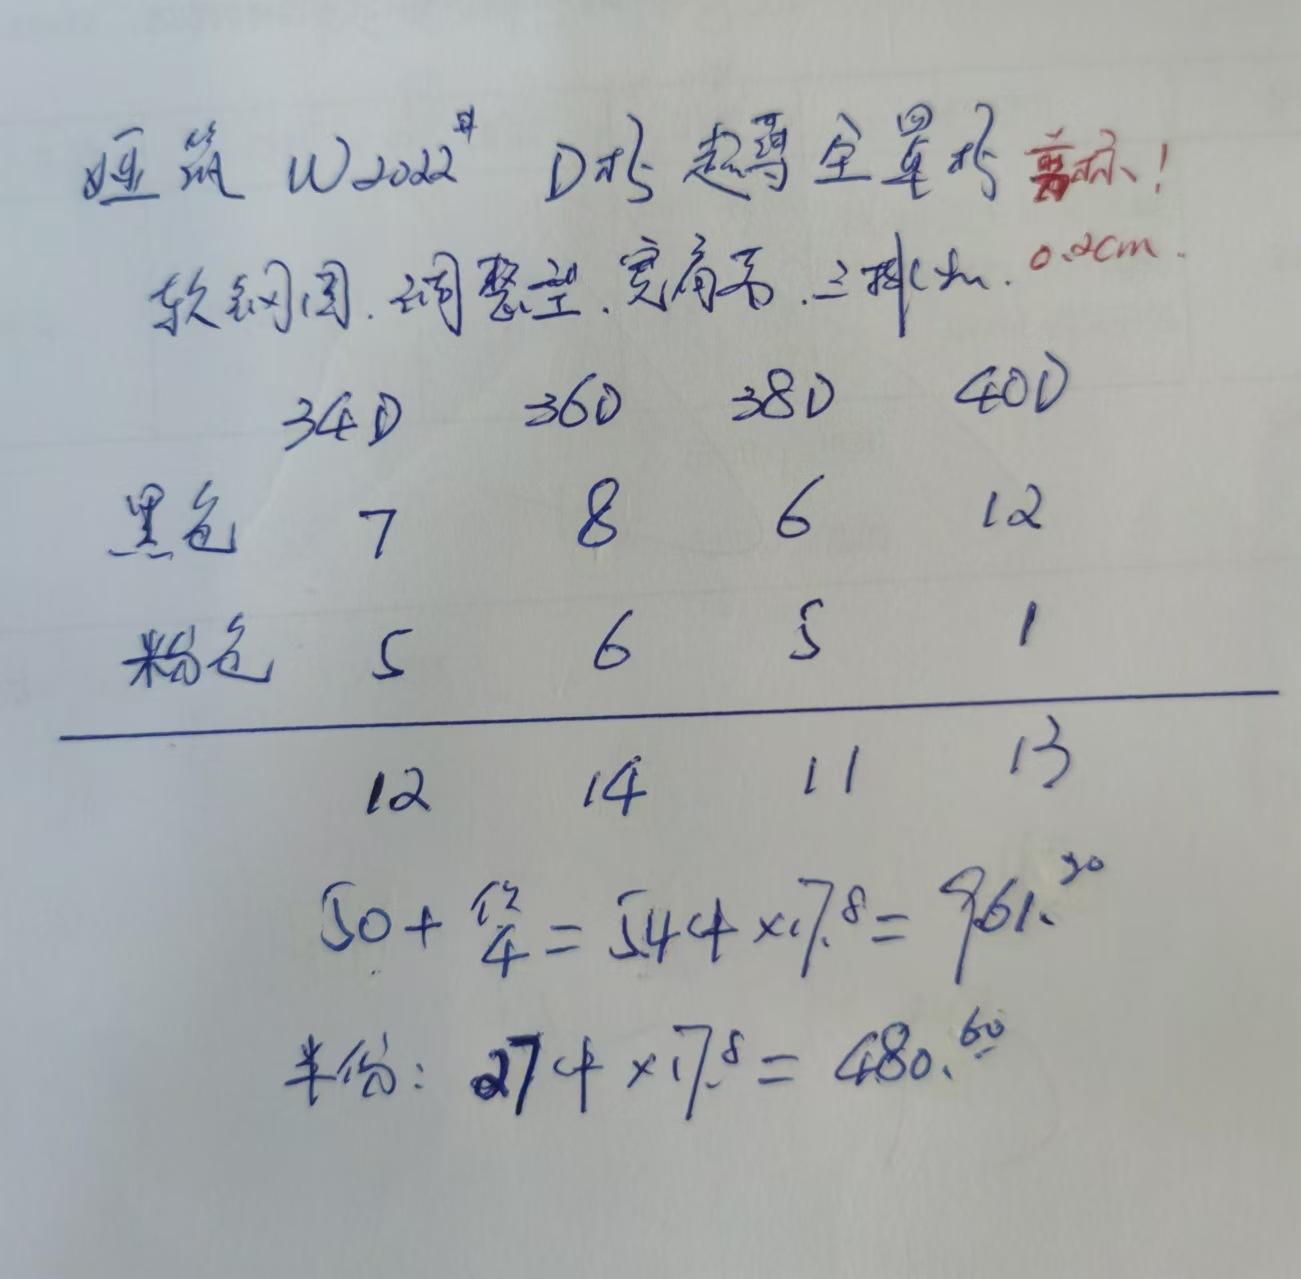 娅筑 W2022# D杯 超薄全罩杯 剪标!
软钢圈.调整型.宽肩带.三排扣. 0.2cm.
34D 36D 38D 40D
黑色 7 8 6 12
粉色 5 6 5 1
12 14 11 13
50+4=54件×17.8=961.20
半份: 27件×17.8=480.60